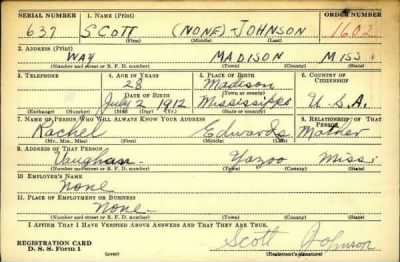 SERIAL NUMBER 1. NAME (Print) ORDER NUMBER
637 SCOTT (NONE) JOHNSON 1602
(First) (Middle) (Last)
2. ADDRESS (Print)
WAY MADISON MISS
(Number and street or R. F. D. number) (Town) (County) (State)
3. TELEPHONE 4. AGE IN YEARS 5. PLACE OF BIRTH 6. COUNTRY OF CITIZENSHIP
28 Madison
DATE OF BIRTH (Town or county)
July 2 1912 Mississippi U.S.A.
(Exchange) (Number) (Mo.) (Day) (Yr.) (State or country)
7. NAME OF PERSON WHO WILL ALWAYS KNOW YOUR ADDRESS 8. RELATIONSHIP OF THAT PERSON
Rachel Edwards Mother
(Mr., Mrs., Miss) (First) (Middle) (Last)
9. ADDRESS OF THAT PERSON
Vaughan Yazoo Miss
(Number and street or R. F. D. number) (Town) (County) (State)
10. EMPLOYER'S NAME
None
11. PLACE OF EMPLOYMENT OR BUSINESS
None
(Number and street or R. F. D. number) (Town) (County) (State)
I AFFIRM THAT I HAVE VERIFIED ABOVE ANSWERS AND THAT THEY ARE TRUE.
REGISTRATION CARD
D. S. S. Form 1 (over) Scott Johnson
(Registrant's signature)